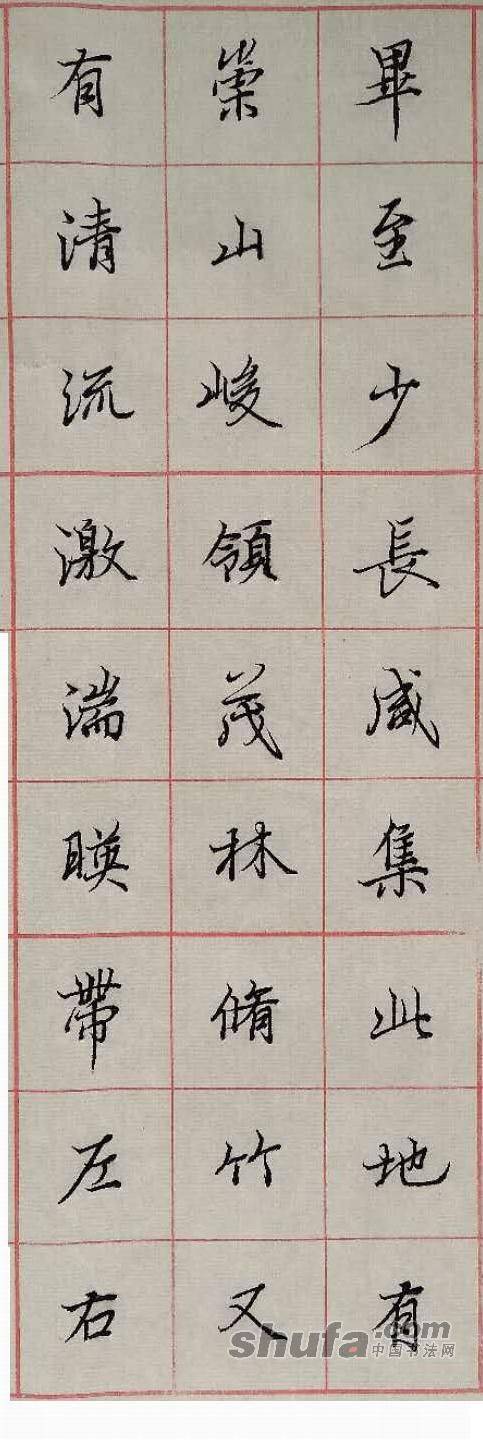 畢至少長咸集此地有
崇山峻領茂林脩竹又
有清流激湍暎帶左右
shufa.com
中国书法网